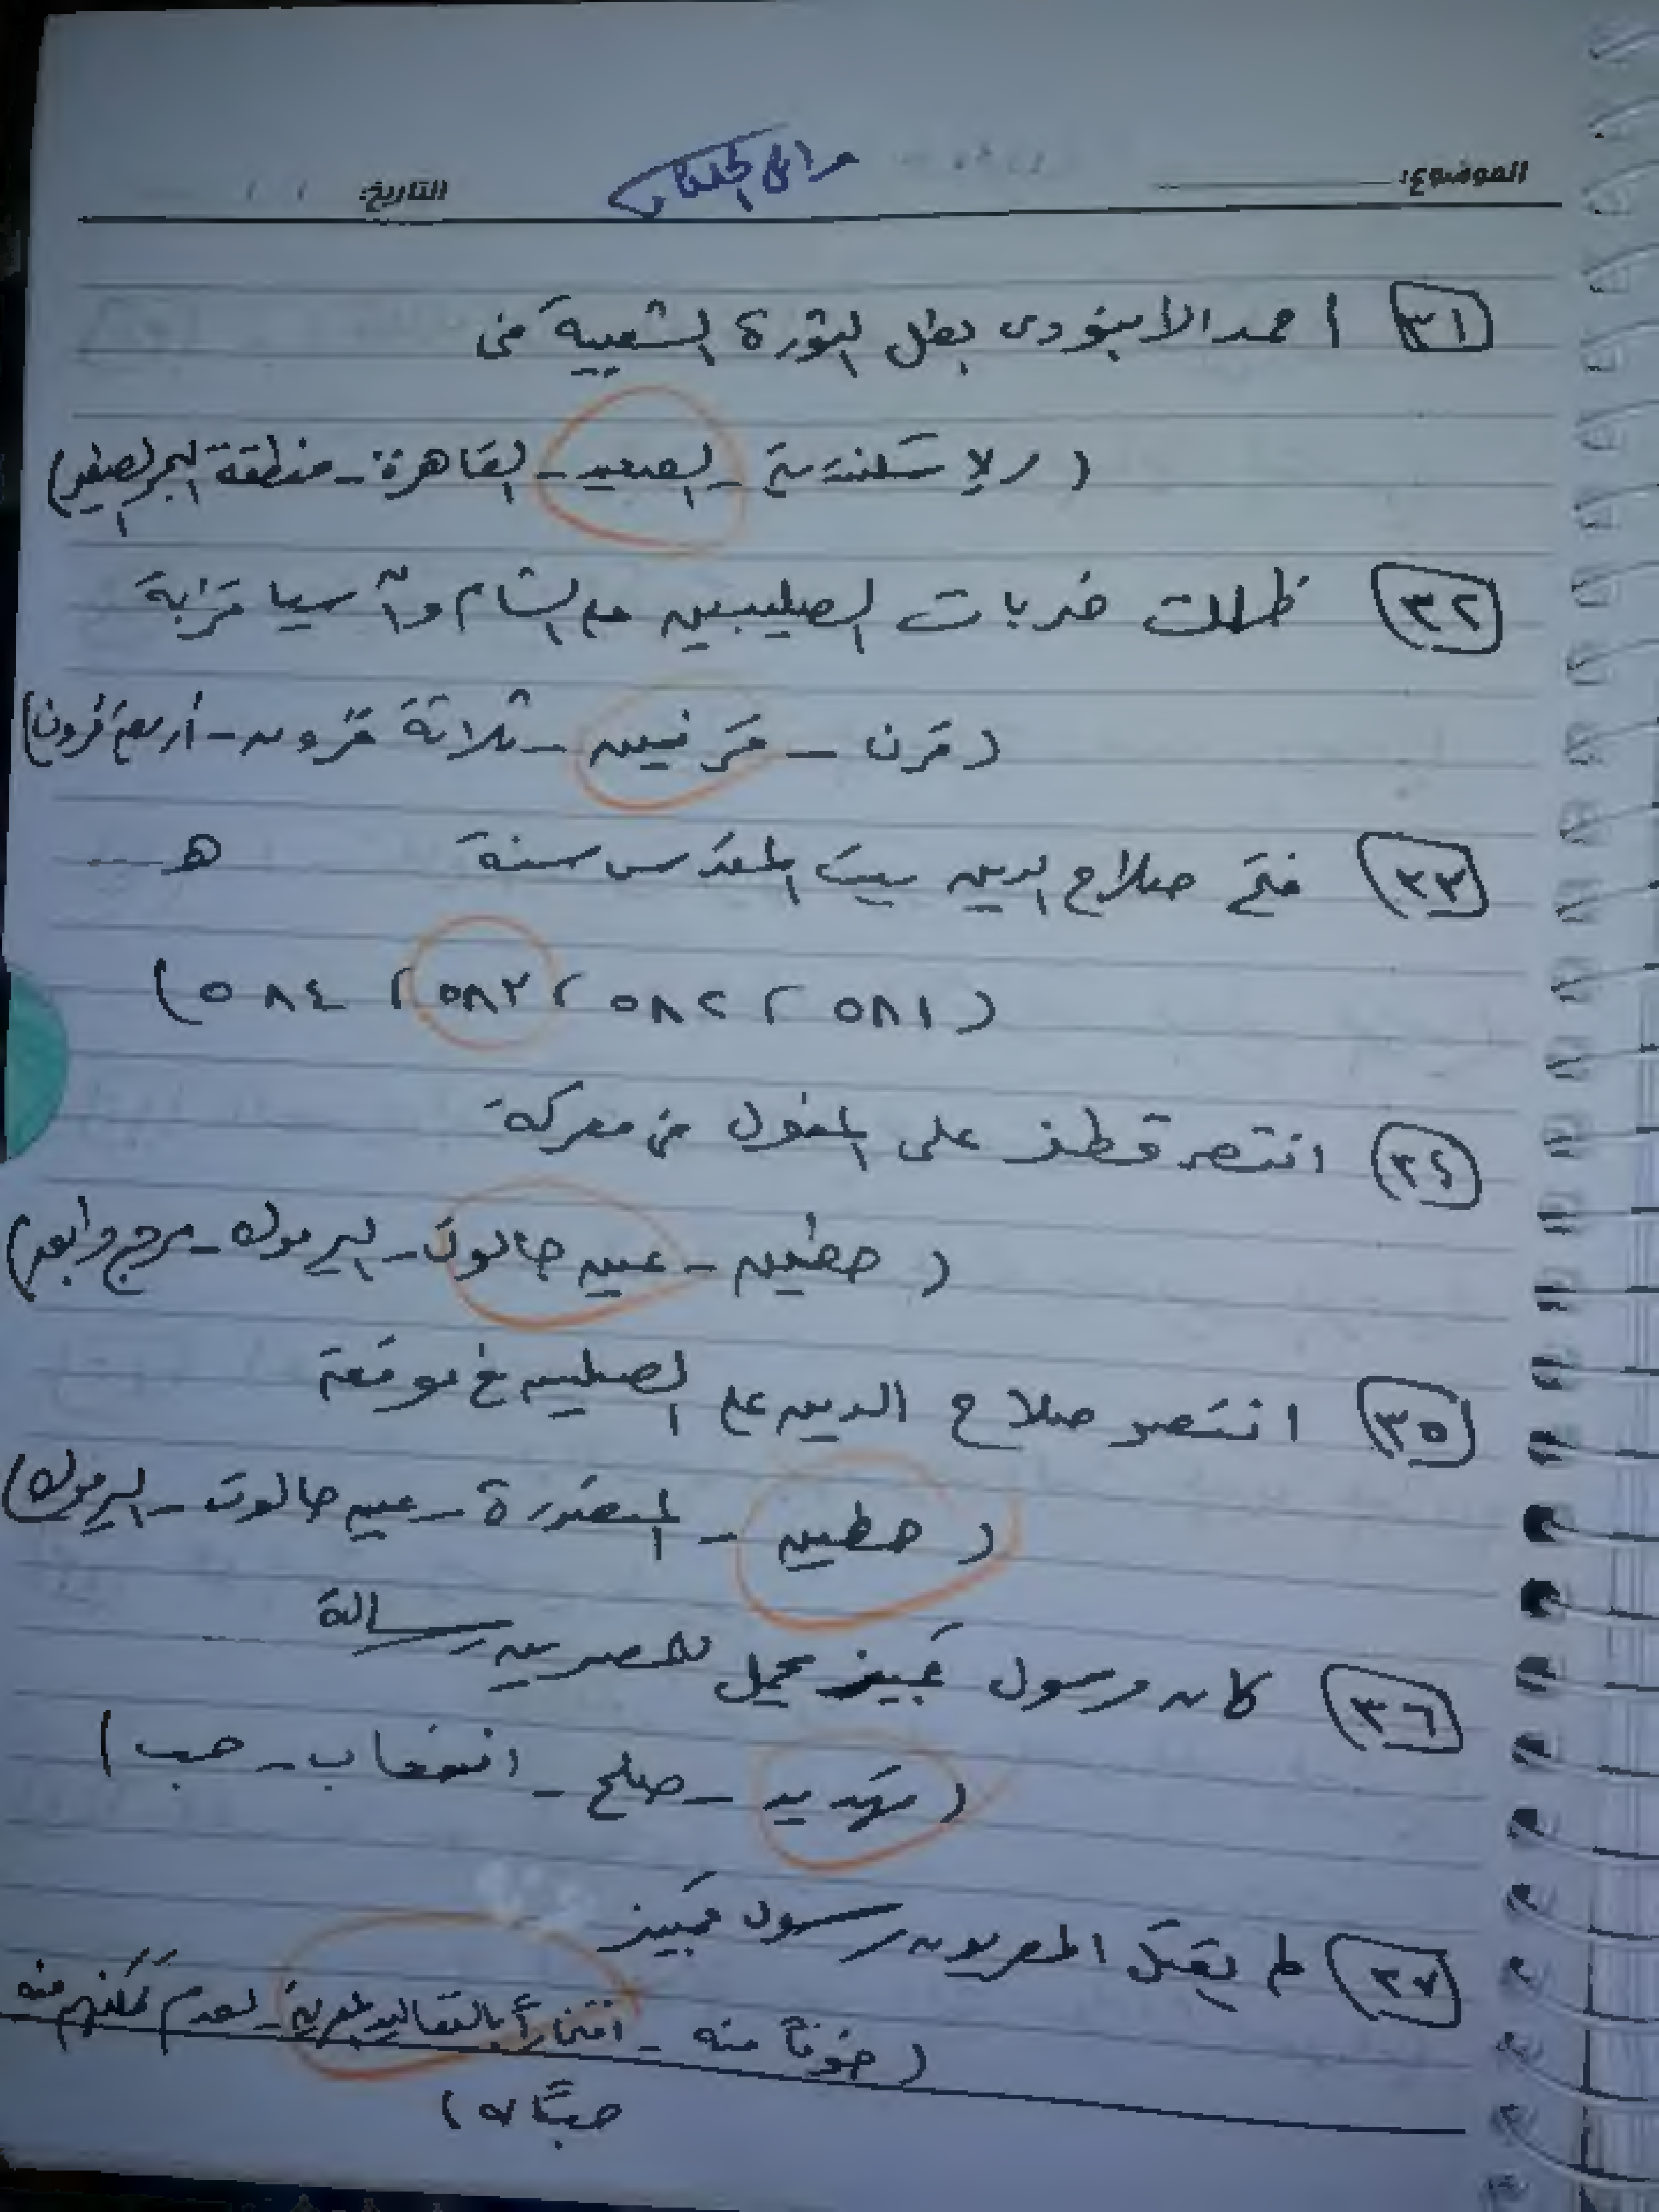 الموضوع: التاريخ: / /
٣١ أحمد الأبنودى بطل الثورة الشعبية فى
(الإسكندرية - الصعيد - القاهرة - منطقة البحر الصغير)
٣٢ ظلت ضربات الصليبيين على الشام وآسيا قرابة
(قرن - قرنين - ثلاثة قرون - أربعة قرون)
٣٣ فتح صلاح الدين بيت المقدس سنة هـ
(٥٨١ ، ٥٨٢ ، ٥٨٣ ، ٥٨٤)
٣٤ انتصر قطز على المغول فى معركة
(حطين - عين جالوت - اليرموك - مرج دابق)
٣٥ انتصر صلاح الدين على الصليبين فى موقعة
(حطين - المنصورة - عين جالوت - اليرموك)
٣٦ كان رسول قمبيز يحمل للمصريين رسالة
(تهديد - صلح - انسحاب - حب)
٣٧ لم يقبل المصريون رسول قمبيز
(خوفًا منه - افتخارًا بالتقاليد المصرية - لعدم تمكنهم منه
حبًا له)